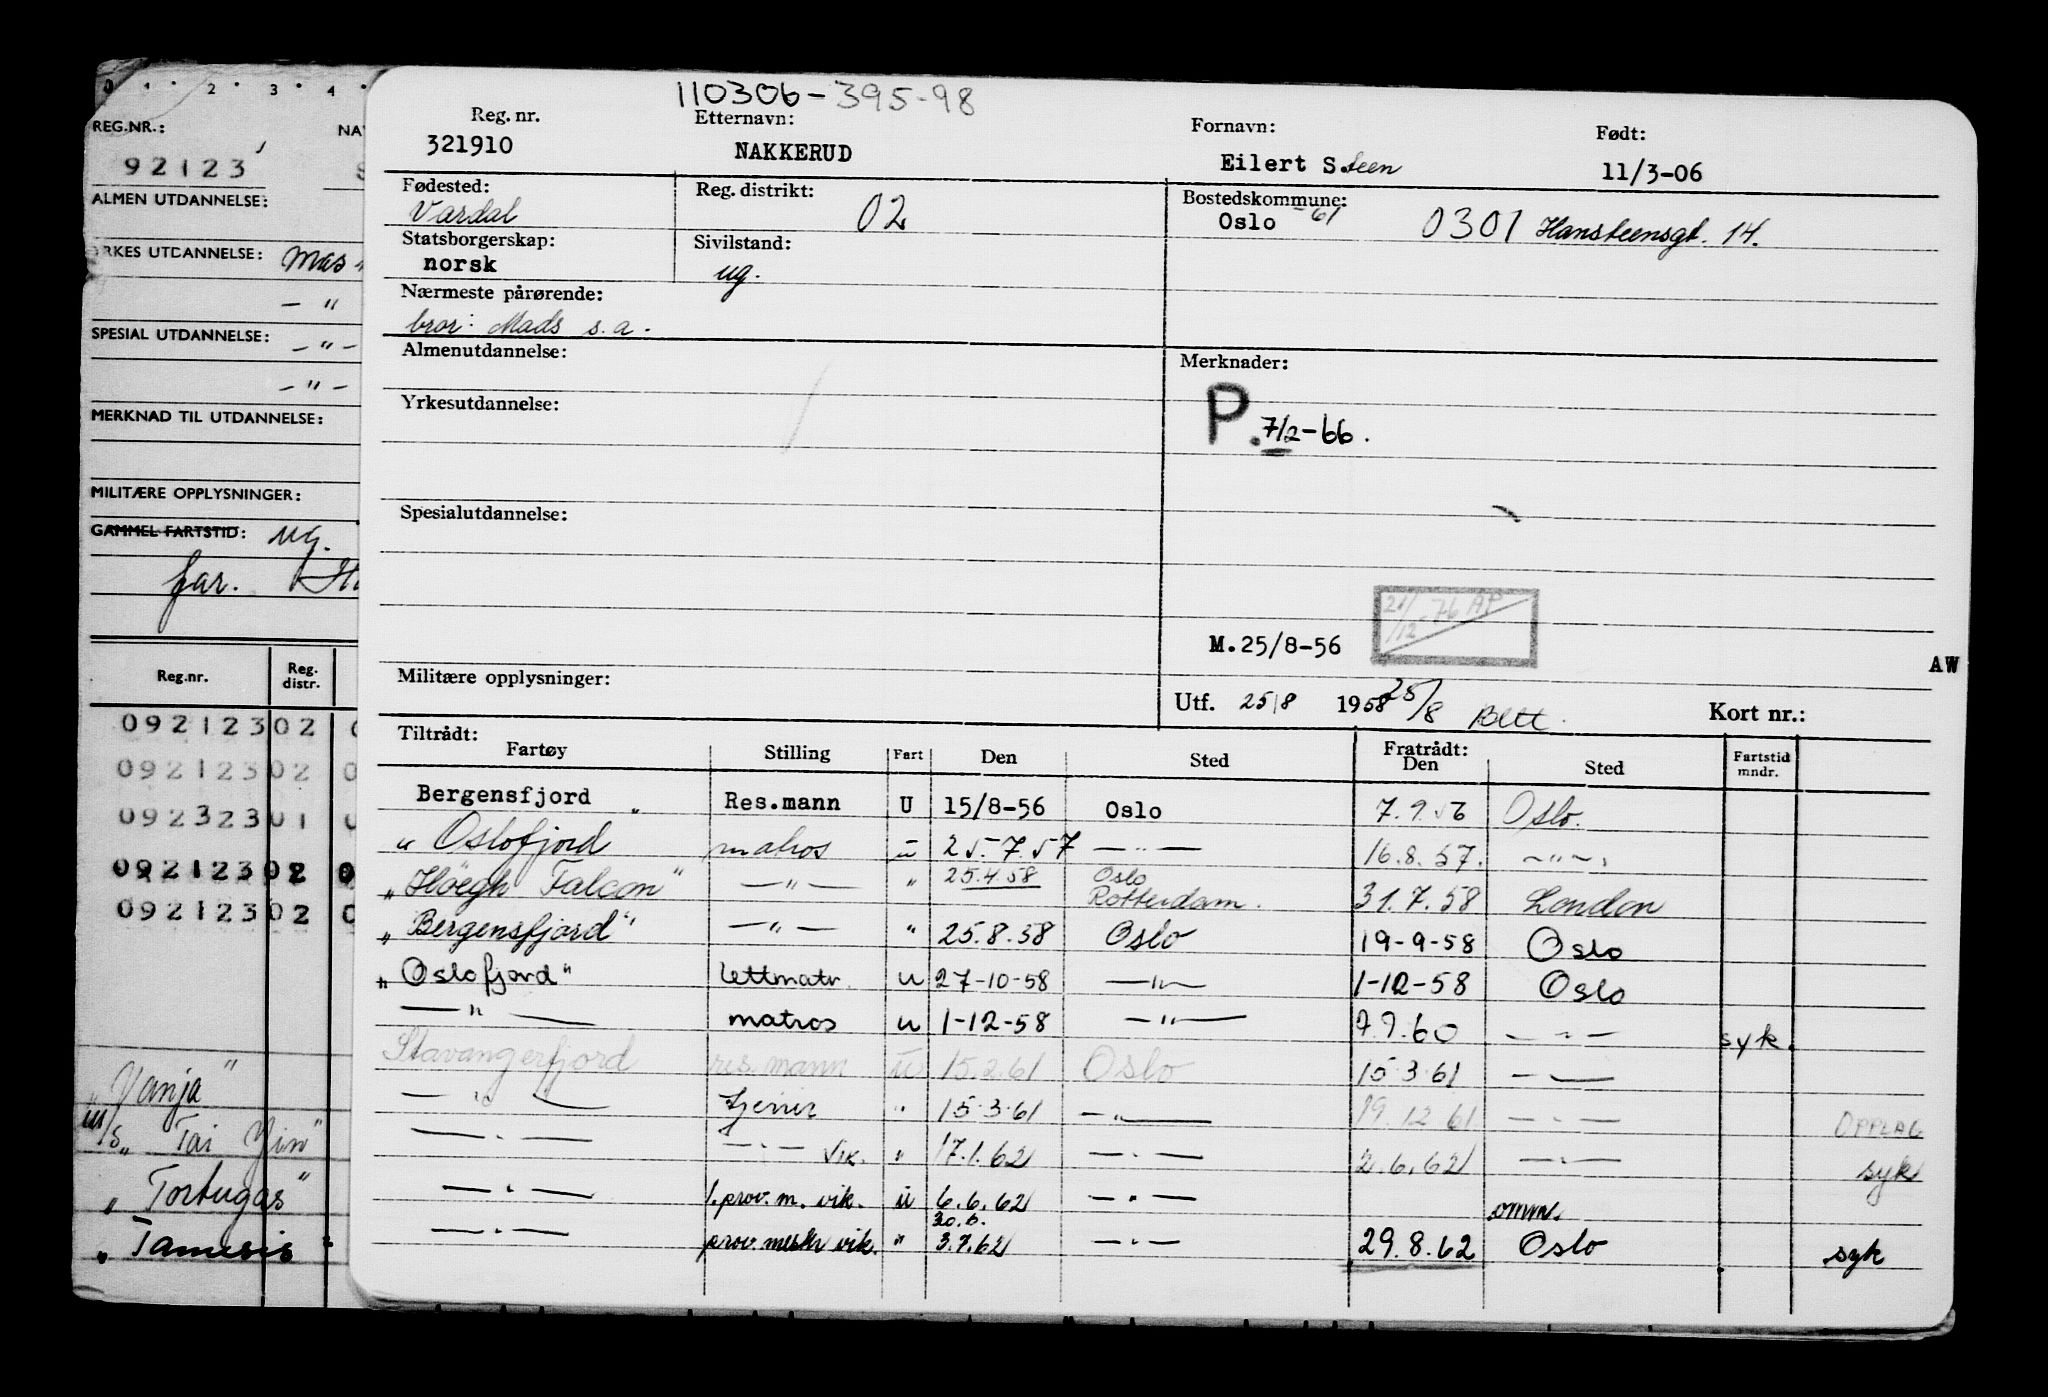 0 1 2 3 4
REG.NR.:
92123
ALMEN UTDANNELSE:
YRKES UTDANNELSE: mas
— " 
SPESIAL UTDANNELSE: — " —
— " —
MERKNAD TIL UTDANNELSE:
MILITÆRE OPPLYSNINGER:
GAMMEL FARTSTID: ug.
far.
Reg.nr. Reg. distr.
092123 02 0
092123 02 0
092323 01
092123 02 0
092123 02 0
"Vanja"
m/s "Tai Yin"
"Tortugas"
"Tamesis"
110306-395-98
Reg. nr. Etternavn: Fornavn: Født:
321910 NAKKERUD Eilert S.teen 11/3-06
Fødested: Reg. distrikt: Bostedskommune:
Vardal 02 Oslo -61 0301 Hansteensgt. 14.
Statsborgerskap: Sivilstand:
norsk ug.
Nærmeste pårørende:
bror: Mads s.a.
Almenutdannelse: Merknader:
Yrkesutdannelse: P. 7/2-66.
Spesialutdannelse:
21/12-76 AP
M.25/8-56
AW
Militære opplysninger: Utf. 25/8 1958 25/8 Kort nr.:
Tiltrådt: Fratrådt:
Fartøy Stilling Fart Den Sted Den Sted Fartstid mndr.
Bergensfjord " Res.mann U 15/8-56 Oslo 7.9.56 Oslo.
" Oslofjord matros u 25.7.57 — " — 16.8.57. — " —
"Høegh Falcon" — " — " 25.4.58 Oslo Rotterdam. 31.7.58 London
"Bergensfjord" — " — " 25.8.58 Oslo 19-9-58 Oslo
"Oslofjord" lettmatr. u 27-10-58 — " — 1-12-58 Oslo
— " — matros u 1-12-58 — " — 7.9.60 — " — syk.
Stavangerfjord res.mann u 15.2.61 Oslo 15.3.61 — " —
— " — " 15.3.61 — " — 19.12.61 — " — OPPLAG
— " — — " — vik. " 17.1.62 — " — 2.6.62 — " — syk
— " — 1. prov. m. vik. u 6.6.62 — " — omm.
30.6.
— " — prov. mestr vik. " 3.7.62 — " — 29.8.62 Oslo syk